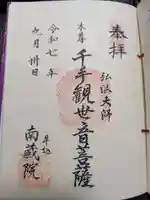 奉拝
弘法大師
本尊
千手観世音菩薩
令和七年
九月卅日
南蔵院